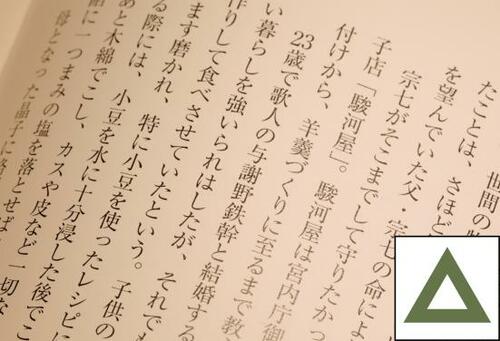 世間の
たことは、さほど
を望んでいた父・宗七の命によ
宗七がそこまでして守りたかっ
子店「駿河屋」。駿河屋は宮内庁御
付けから、羊羹づくりに至るまで教
23歳で歌人の与謝野鉄幹と結婚する
い暮らしを強いられはしたが、それでも
作りして食べさせていたという。子供の
ます磨かれ、特に小豆を使ったレシピに
る際には、小豆を水に十分浸した後でこ
あと木綿でこし、カスや皮など一切な
餡に一つまみの塩を落とせば
母となった晶子に